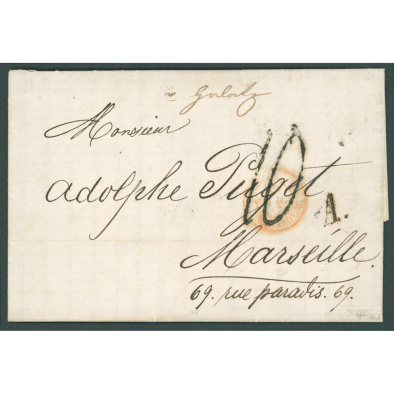 Monsieur
Adolphe Puget
10
A.
Marseille.
69. rue paradis. 69.